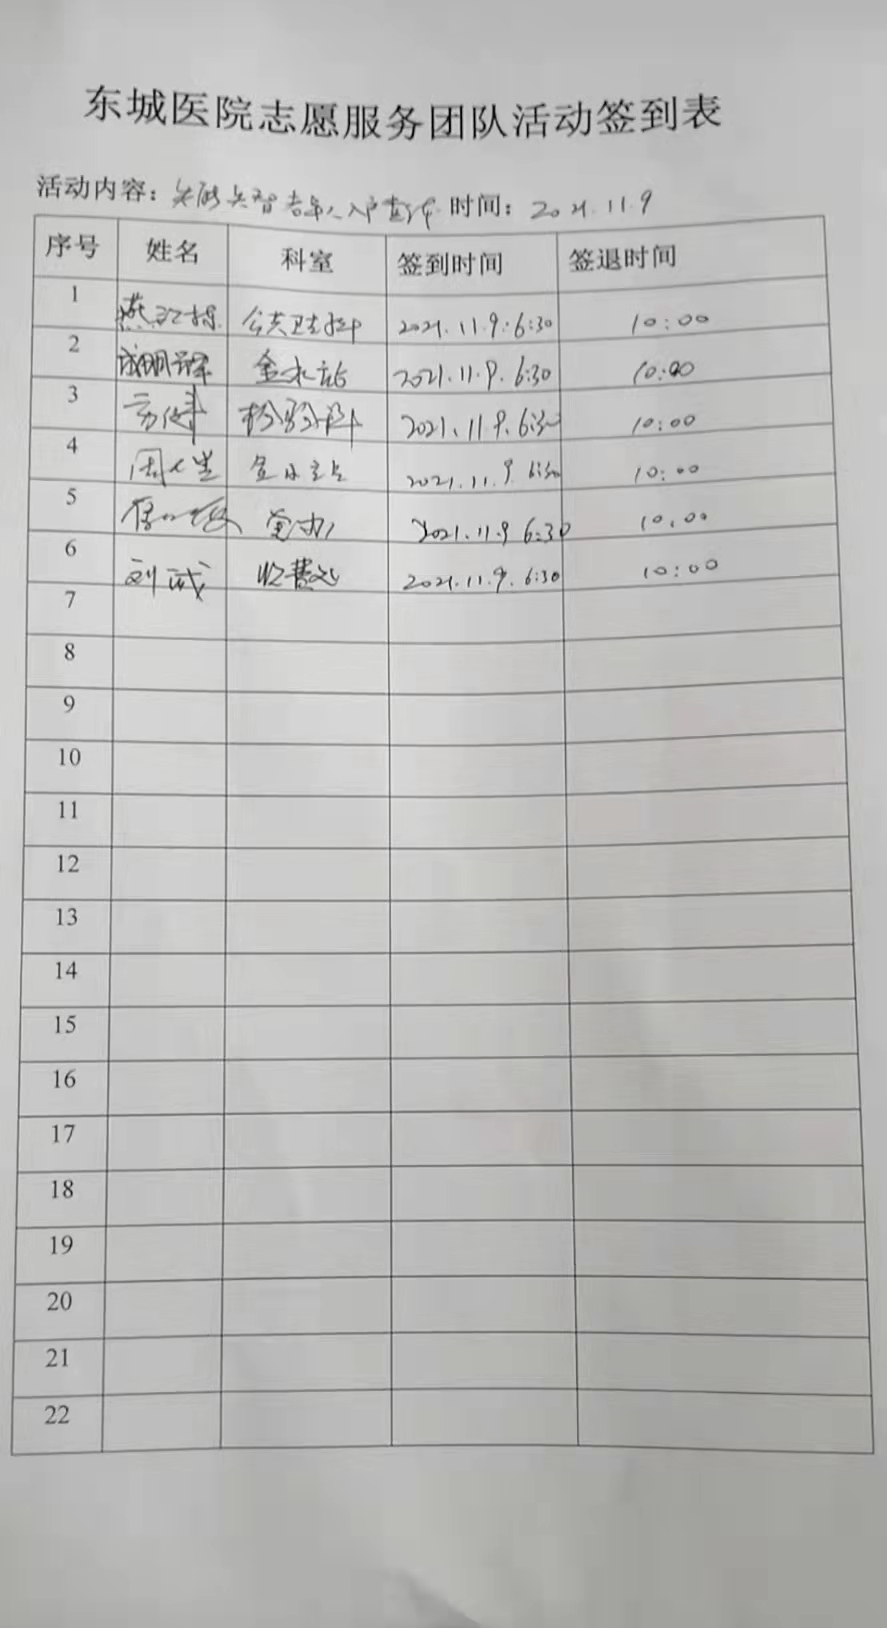 东城医院志愿服务团队活动签到表
活动内容：失能失智老年人入户查体 时间：2021.11.9
序号 姓名 科室 签到时间 签退时间
1 公共卫生科 2021.11.9.6:30 10:00
2 金水站 2021.11.9.6:30 10:00
3 检验科 2021.11.9.6:30 10:00
4 金水站 2021.11.9 6:30 10:00
5 党办 2021.11.9 6:30 10:00
6 刘诚 收费处 2021.11.9.6:30 10:00
7
8
9
10
11
12
13
14
15
16
17
18
19
20
21
22